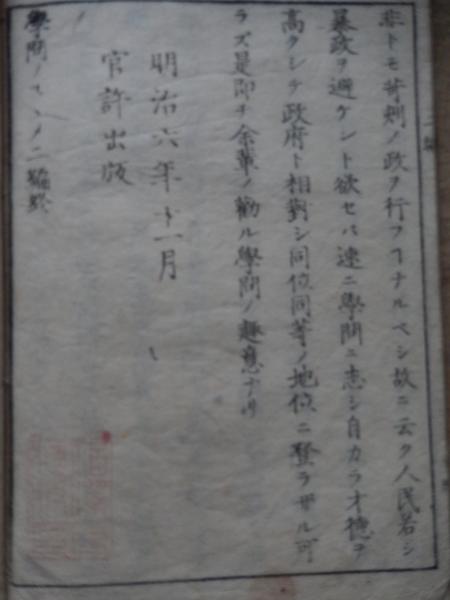 非トモ苛刻ノ政ヲ行フヿナルベシ故ニ云ク人民若シ
暴政ヲ避ケント欲セバ速ニ學問ニ志シ自カラ才德ヲ
高クシテ政府ト相對シ同位同等ノ地位ニ登ラザル可
ラズ是即チ余輩ノ勸ル學問ノ趣意ナリ
明治六年十一月
官許出版
學問ノスヽメ二編終